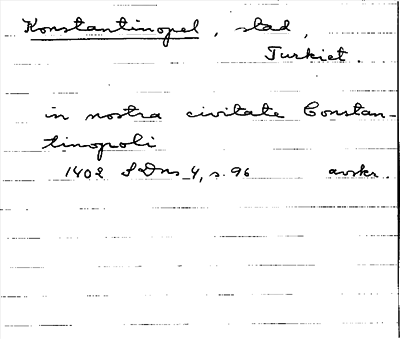 Konstantinopel, stad,
Turkiet.
in nostra civitate Constan-
tinopoli
1402 SDns 4, s. 96 avskr.